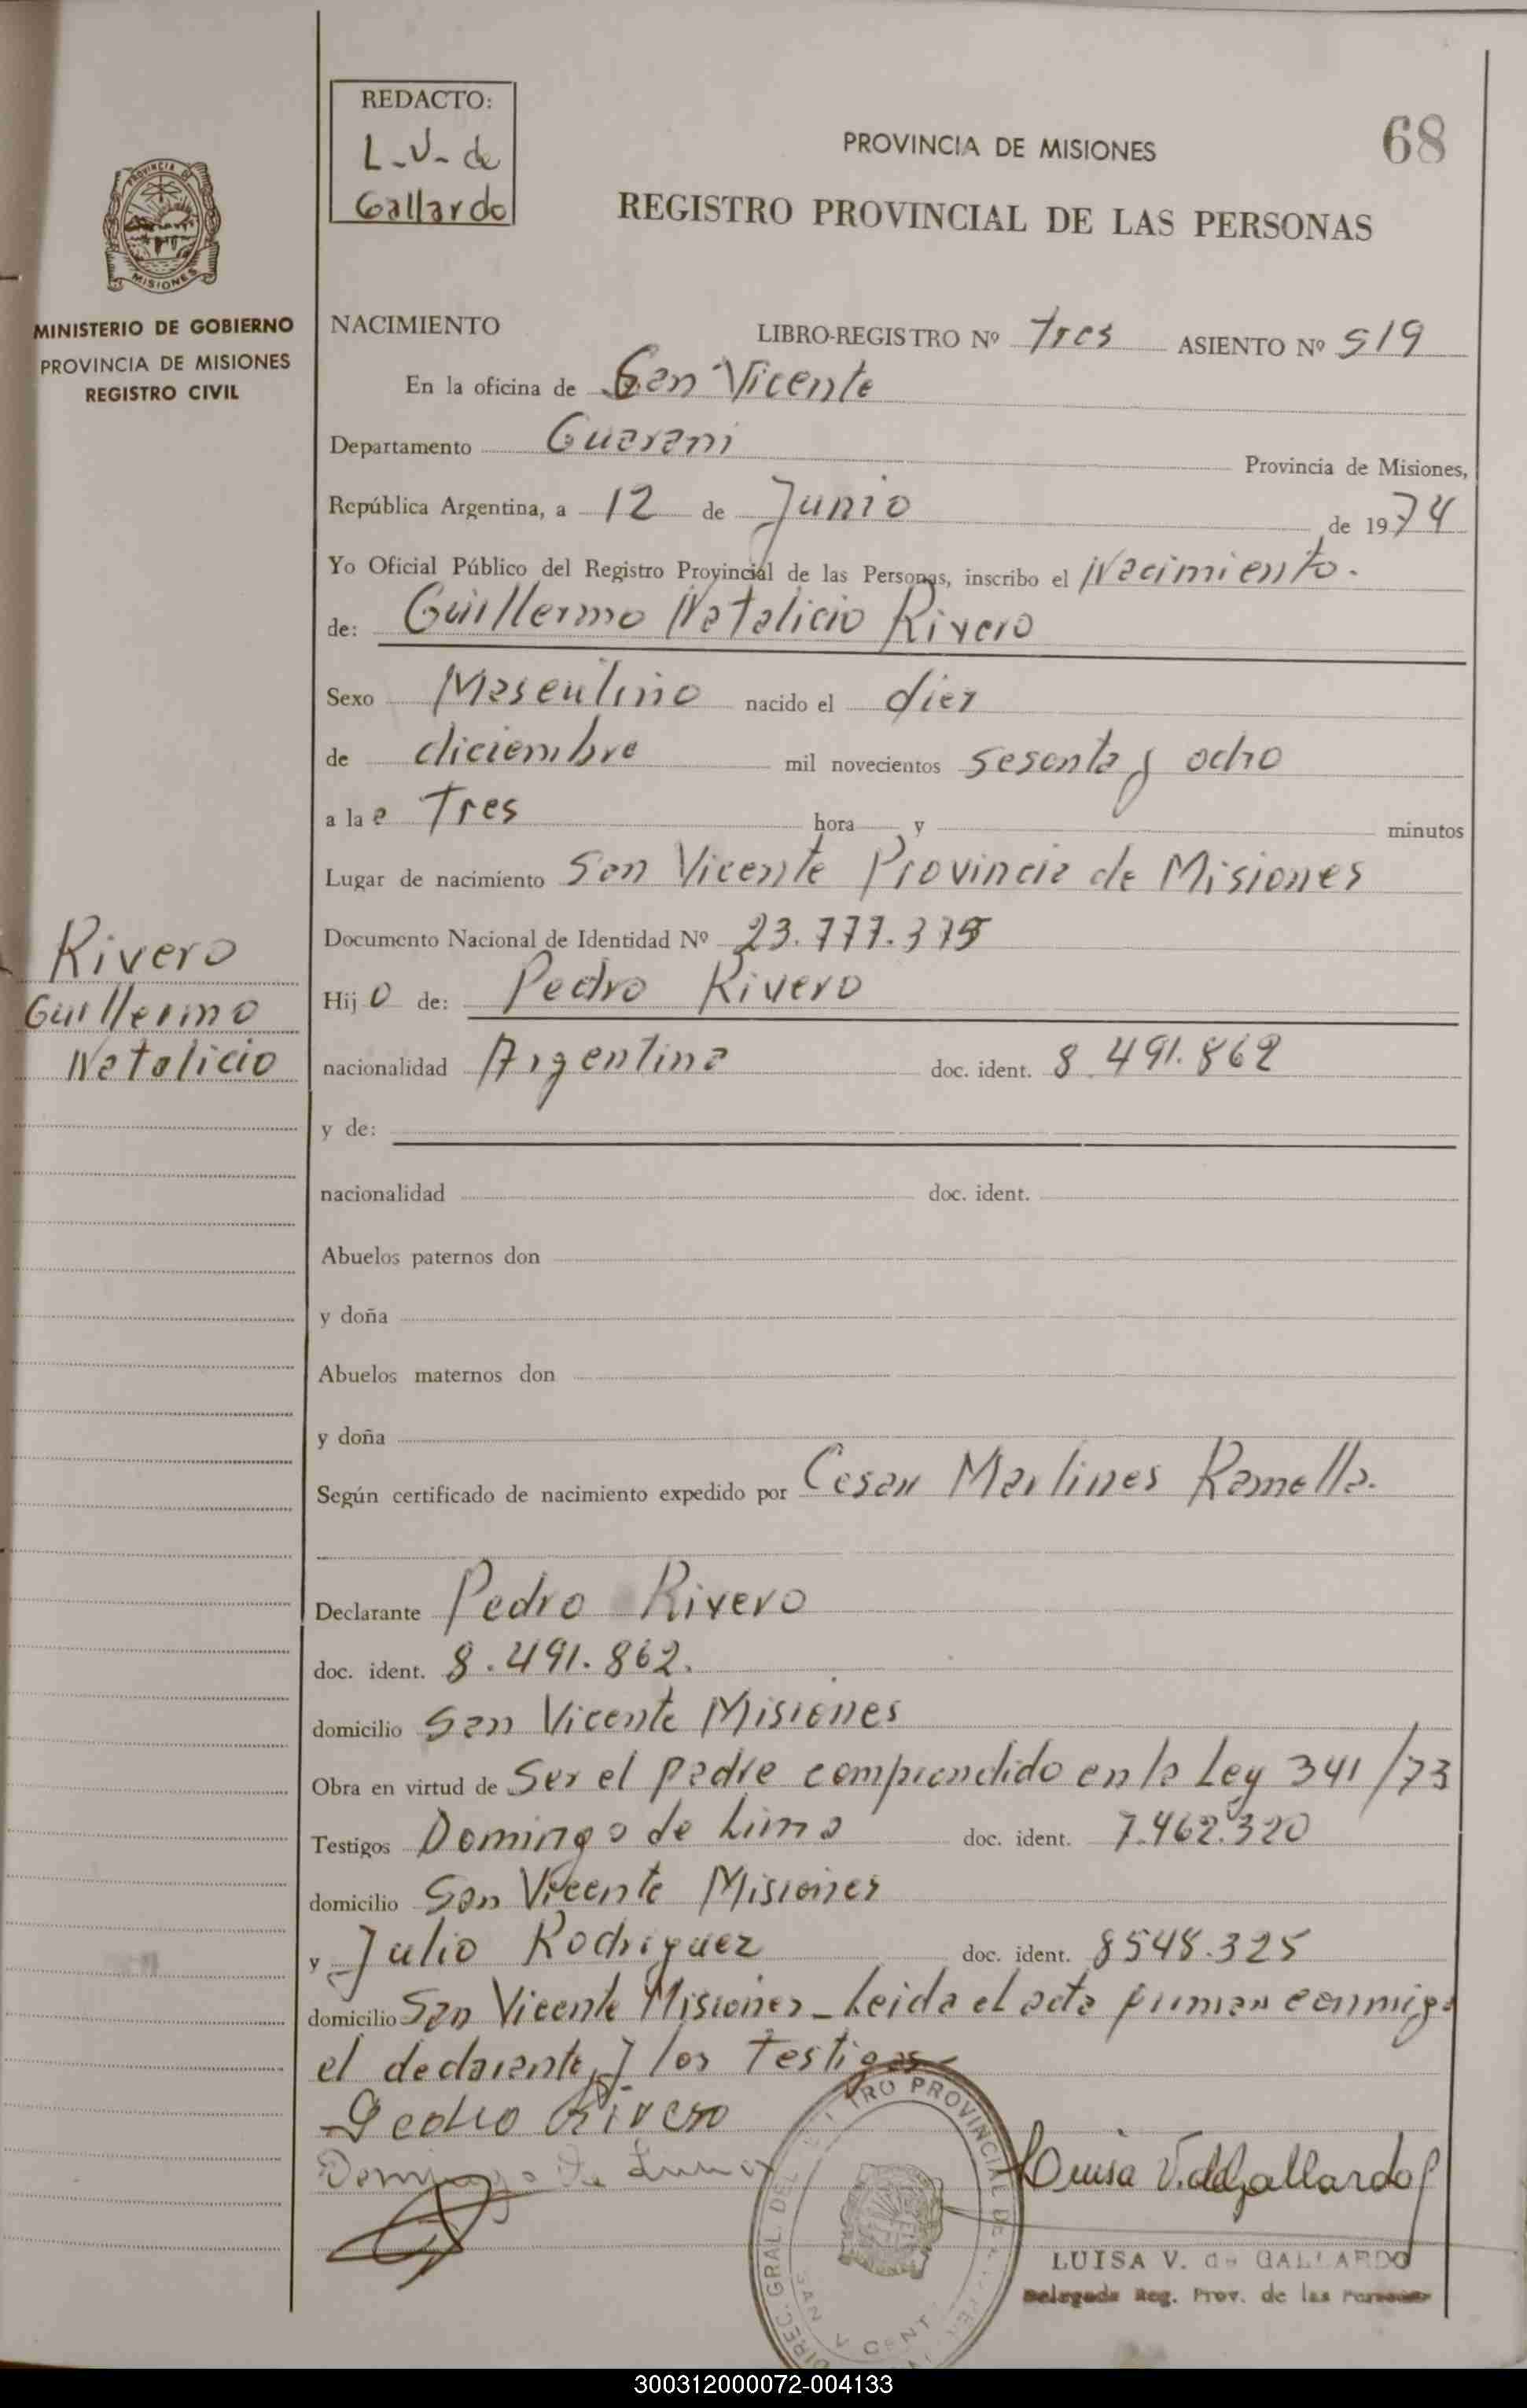 REDACTO:
L-V- de
Gallardo
PROVINCIA DE MISIONES
68
REGISTRO PROVINCIAL DE LAS PERSONAS
PROVINCIA DE
MISIONES
MINISTERIO DE GOBIERNO
PROVINCIA DE MISIONES
REGISTRO CIVIL
NACIMIENTO LIBRO-REGISTRO Nº Tres ASIENTO Nº 519
En la oficina de San Vicente
Departamento Guarani Provincia de Misiones,
República Argentina, a 12 de Junio de 1974
Yo Oficial Público del Registro Provincial de las Personas, inscribo el Nacimiento.
de: Guillermo Natalicio Rivero
Sexo Masculino nacido el diez
de diciembre mil novecientos sesenta y ocho
a la s Tres hora y minutos
Lugar de nacimiento San Vicente Provincia de Misiones
Documento Nacional de Identidad Nº 23.777.375
Rivero
Guillermo
Natalicio
Hij o de: Pedro Rivero
nacionalidad Argentina doc. ident. 8.491.862
y de:
nacionalidad doc. ident.
Abuelos paternos don
y doña
Abuelos maternos don
y doña
Según certificado de nacimiento expedido por Cesar Martines Ramella.
Declarante Pedro Rivero
doc. ident. 8.491.862.
domicilio San Vicente Misiones
Obra en virtud de Ser el padre comprendido en la Ley 341/73
Testigos Domingo de Lima doc. ident. 7.462.320
domicilio San Vicente Misiones
y Julio Rodriguez doc. ident. 8548.325
domicilio San Vicente Misiones - Leida el acta firman conmigo
el declarante y los Testigos-
Pedro Rivero
Domingo De Lima
Luisa V. de Gallardo
LUISA V. de GALLARDO
Delegada Reg. Prov. de las Personas
DIREC. GRAL. DEL PROVINCIAL DE
SAN VICENTE
300312000072-004133